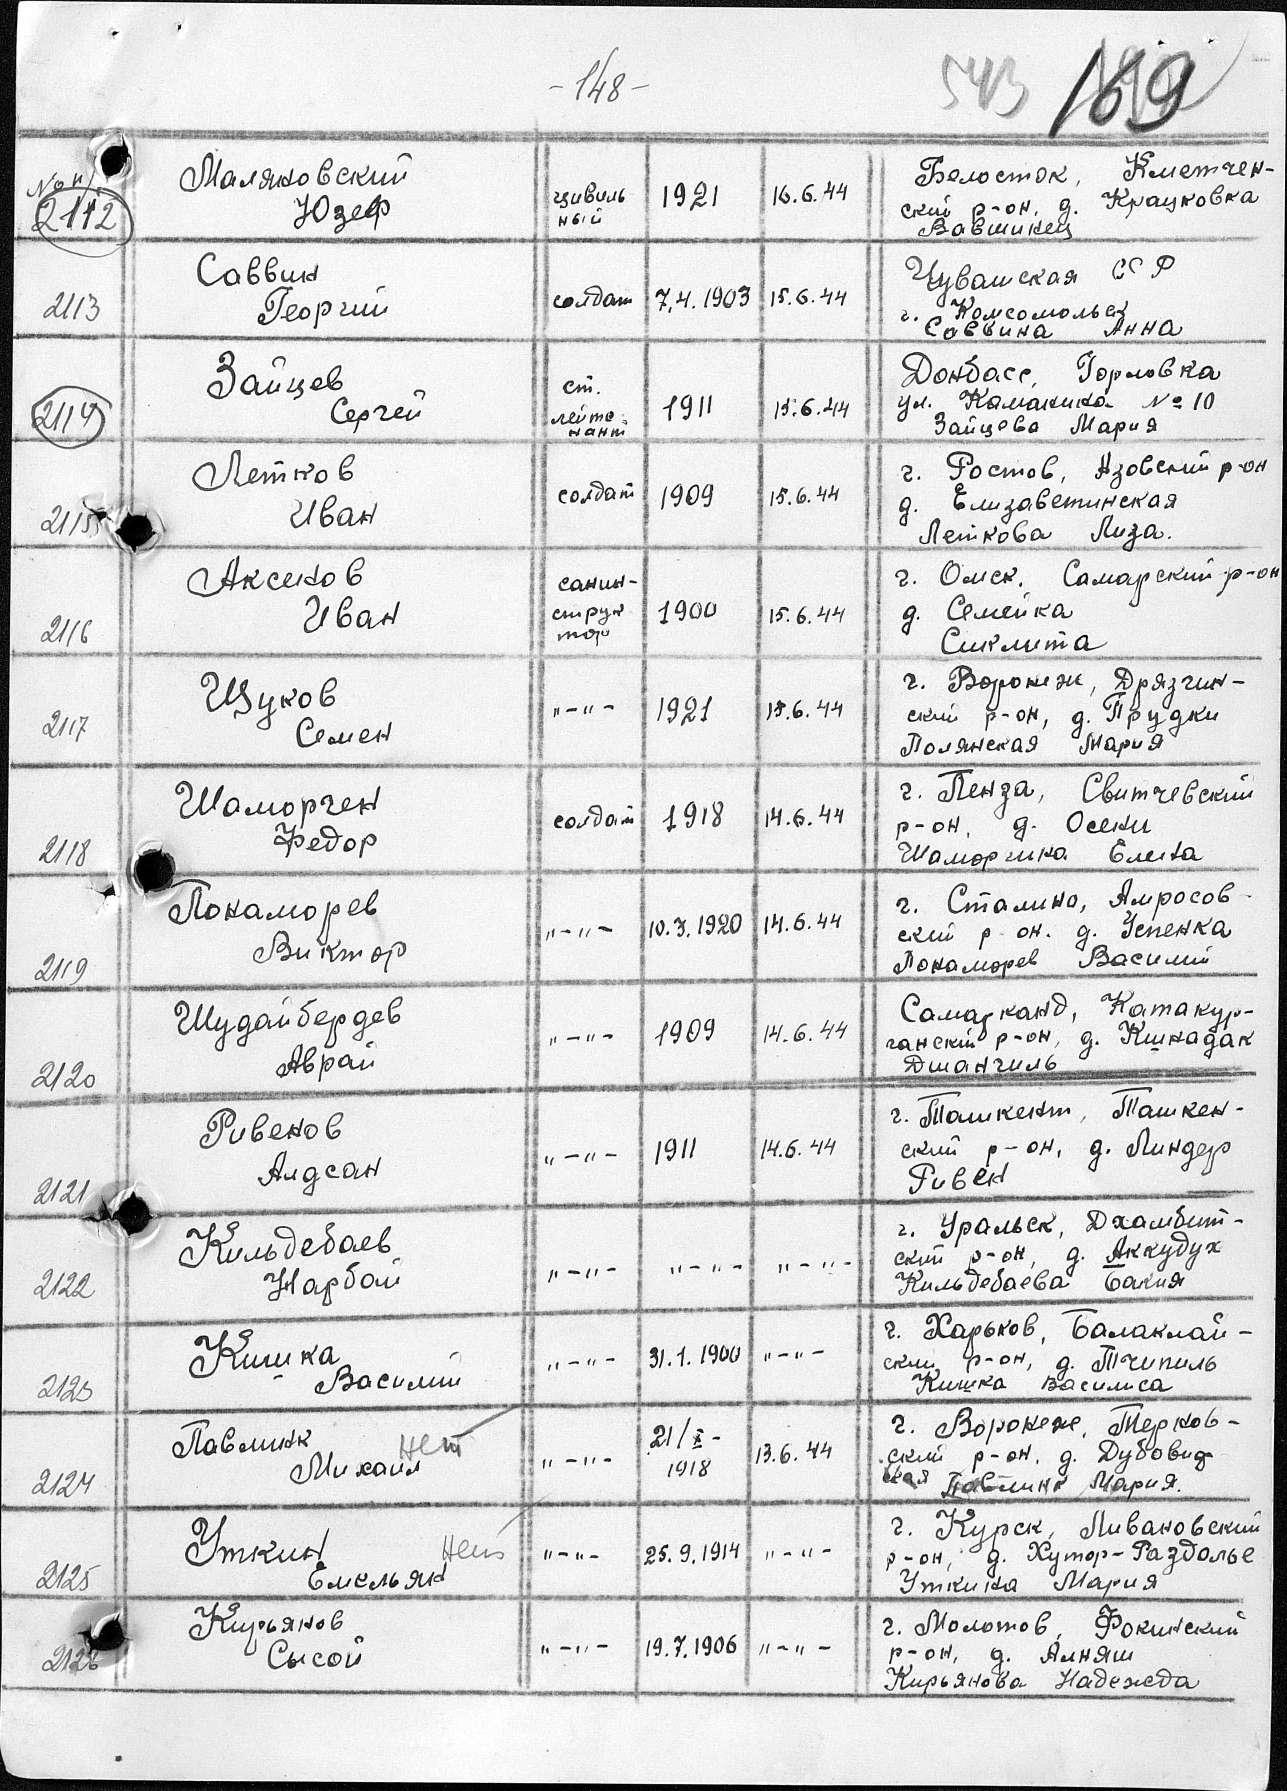 -148-
543
169
№ п/
2112
Маляковский
Юзеф
цивиль
ный
1921
16.6.44
Белосток, Кметчен-
ский р-он, д. Крацковка
Вавшикец
2113
Саввин
Георгий
солдат
7.4.1903
15.6.44
Чувашская ССР
г. Комсомольск
Саввина Анна
2114
Зайцев
Сергей
ст.
лейте-
нант
1911
15.6.44
Донбасс, Горловка
ул. Каманина № 10
Зайцева Мария
2115
Летков
Иван
солдат
1909
15.6.44
г. Ростов, Азовский р-он
д. Елизаветинская
Леткова Лиза.
2116
Аксенов
Иван
санин-
струк
тор
1900
15.6.44
г. Омск, Самарский р-он
д. Семейка
Сиклита
2117
Щуков
Семен
"-"-
1921
15.6.44
г. Воронеж, Дрязгин-
ский р-он, д. Прудки
Полянская Мария
2118
Шаморген
Федор
солдат
1918
14.6.44
г. Пенза, Свитчевский
р-он, д. Осеки
Шаморгина Елена
2119
Понаморев
Виктор
"-"-
10.3.1920
14.6.44
г. Сталино, Амросов-
ский р-он. д. Успенка
Понаморев Василий
2120
Шудайбердев
Аврай
"-"-
1909
14.6.44
Самарканд, Катакур-
ганский р-он, д. Кшнадак
Джангиль
2121
Ривенов
Алдсан
"-"-
1911
14.6.44
г. Ташкент, Ташкен-
ский р-он, д. Линдер
Ривен
2122
Кильдебаев
Нарбай
"-"-
"-"-
"-"-
г. Уральск, Джамбит-
ский р-он, д. Аккудух
Кильдебаева Бакия
2123
Кишка
Василий
"-"-
31.1.1900
"-"-
г. Харьков, Балаклай-
ский р-он, д. Тчипиль
Кишка Василиса
2124
Павлинк
Михаил
нет
"-"-
21/X-
1918
13.6.44
г. Воронеж, Терков-
ский р-он, д. Дубовид
кая Павлинк Мария.
2125
Уткин
Емельян
нет
"-"-
25.9.1914
"-"-
г. Курск, Ливановский
р-он, д. Хутор-Раздолье
Уткина Мария
2126
Кирьянов
Сысой
"-"-
19.7.1906
"-"-
г. Молотов, Фокинский
р-он, д. Алняш
Кирьянова Надежда